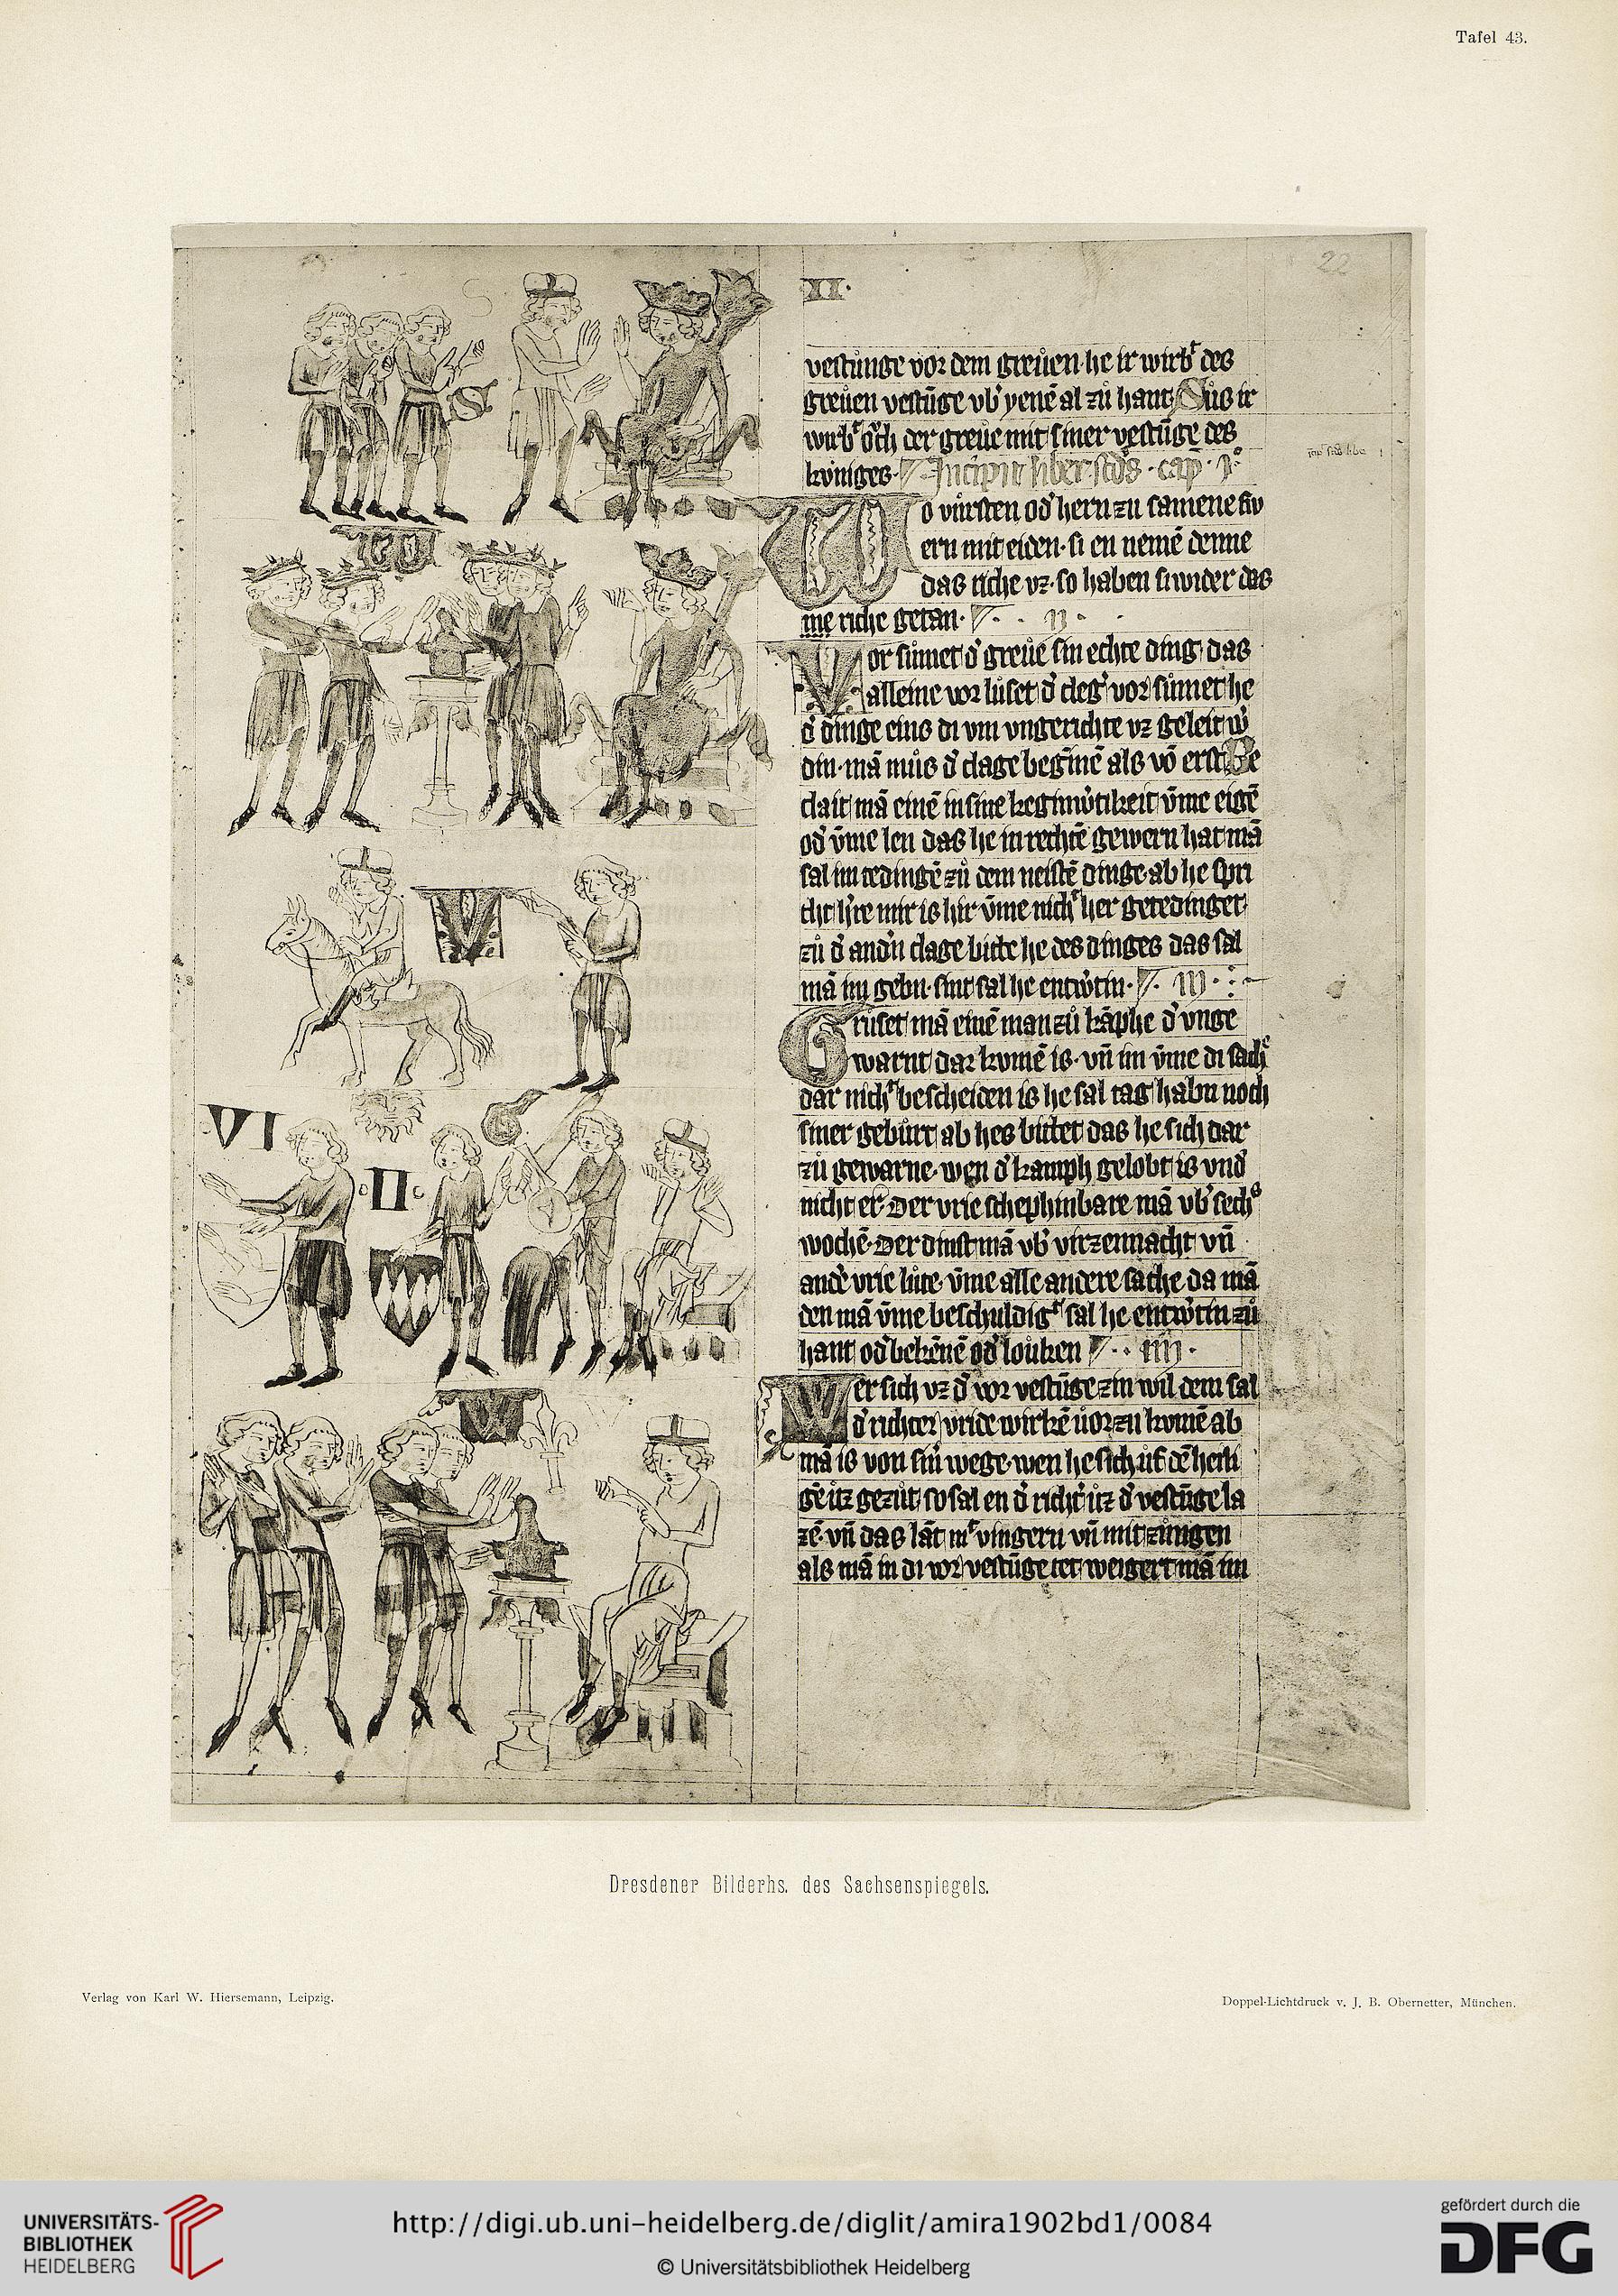 Tafel 43.
22
·II·
vestunge vor dem greuen· he ir wirb͛ des
greuen vestūge vb͛ yenē al zů hant Sůs ir
wirb͛ och der greue mit siner vestūge des
koniges· Incipit liber scd͛s · cap̄ · jͦ
Wo vursten od͛ hern zu samene sw
ern mit eiden· si en nemē denne
das riche vz· so haben si wider das
me riche getan· · · ij ·
Vor sumet d͛ greue sin echte ding das
alleine vor luset d͛ cleg͛ vor sumet he
d͛ dinge eins di vm vngerichte vz geleit w͛
din· mā mus d͛ clage begīnē als vō erst Be
clait mā einē in sine keginw͛tikeit v̄me eigē
od͛ v̄me len das he in rechtē gewern hat mā
sal im tedingē zů dem neistē dinge· ab he spri
cht h͛re mir is hir v̄me nich͛ her getedinget
zů d͛ and͛n clage bitte he des dinges das sal
mā im gebn· sint sal he entw͛tin· · iij · :
Grůset mā einē man zů kāphe d͛ vnge
warnt dar komē is· vn̄ im v̄me di sach͛
dar nich͛ bescheiden is he sal tag habn noch
siner geburt ab hes bittet das he sich dar
zů gewarne· wen d͛ kamph gelobt is vnd͛
nicht er· Der vrie schephinbare mā vb͛ sechs
wochē· Der dinstmā vb͛ virzennacht vn̄
and͛e vrie lute· v̄me alle andere sache da mā
den mā v̄me beschuldig͛ sal he entw͛tin zů
hant od͛ bekēnē od͛ louken · · iiij ·
Wer sich vz d͛ vor vestūge zin wil dem sal
d͛ richter vride wirkē uor zu komē ab
mā is von sin͛ wege· wen he sich uf dē heili
gē uz gezut so sal en d͛ richt͛ uz d͛ vestūge la
zē· vn̄ das lāt m͛ vingern vn̄ mit zungen
als mā in di vor vestūge tet weigert mā im
S
WO
V
VI
G
·II·
W
Dresdener Bilderhs. des Sachsenspiegels.
Verlag von Karl W. Hiersemann, Leipzig.
Doppel-Lichtdruck v. J. B. Obernetter, München.
UNIVERSITÄTS-
BIBLIOTHEK
HEIDELBERG
http://digi.ub.uni-heidelberg.de/diglit/amira1902bd1/0084
© Universitätsbibliothek Heidelberg
gefördert durch die
DFG